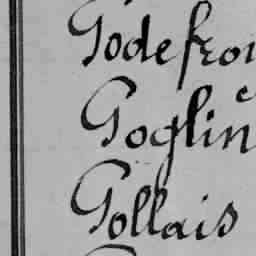 Godefroi
Goglin
Gollais